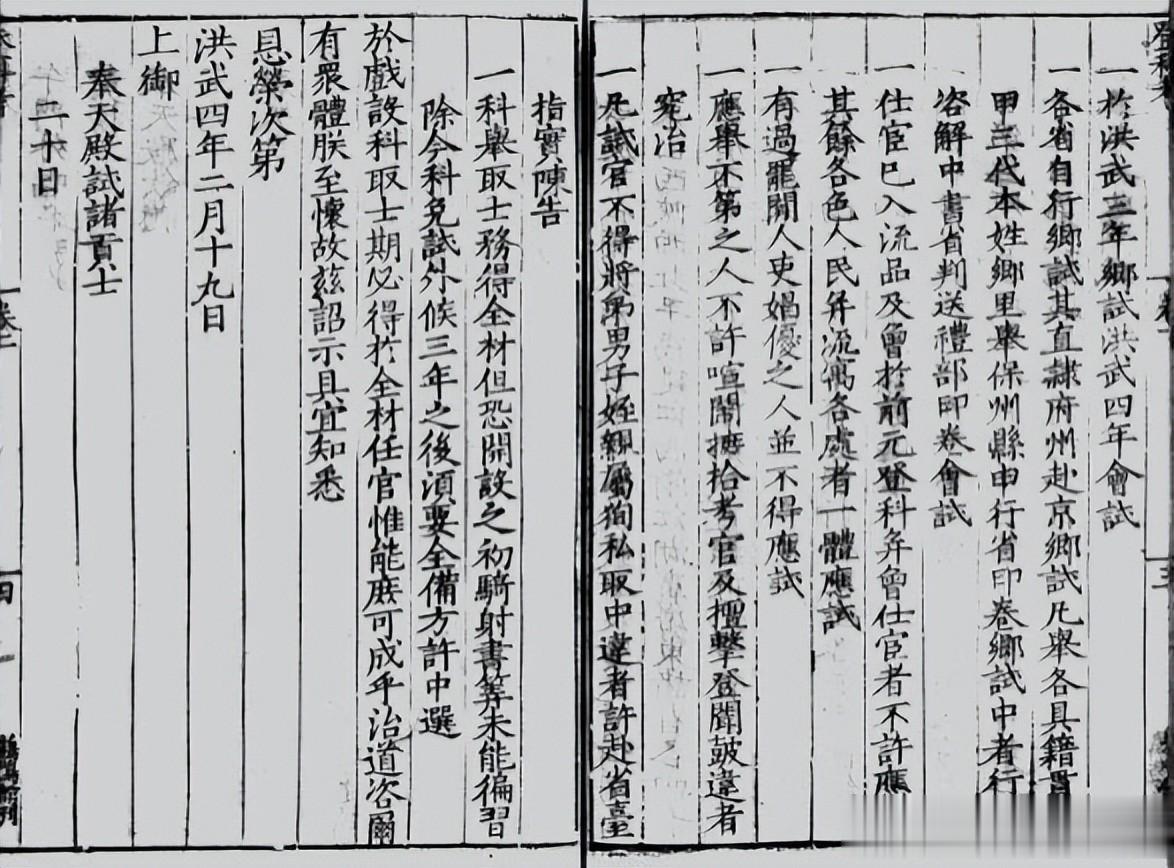 一於洪武三年鄉試洪武四年會試
一各省自行鄉試其直隸府州赴京鄉試凡舉各具籍貫
甲三代本姓鄉里舉保州縣申行省印卷鄉試中者行
咨解中書省判送禮部印卷會試
一仕宦已入流品及曾於前元登科并曾仕宦者不許應
其餘各色人民并流寓各處者一體應試
一有過罷閑人吏娼優之人並不得應試
一應舉不第之人不許喧鬧摭拾考官及擅擊登聞皷違者
究治
一凡試官不得將弟男子姪親屬徇私取中違者許赴省臺
三
指實陳告
一科舉取士務得全材但恐開設之初騎射書筭未能徧習
除今科免試外候三年之後須要全備方許中選
於戲設科取士期必得於全材任官惟能庶可成乎治道咨爾
有衆體朕至懷故兹詔示具宜知悉
恩榮次第
洪武四年二月十九日
上御
奉天殿試諸貢士
二十日
四